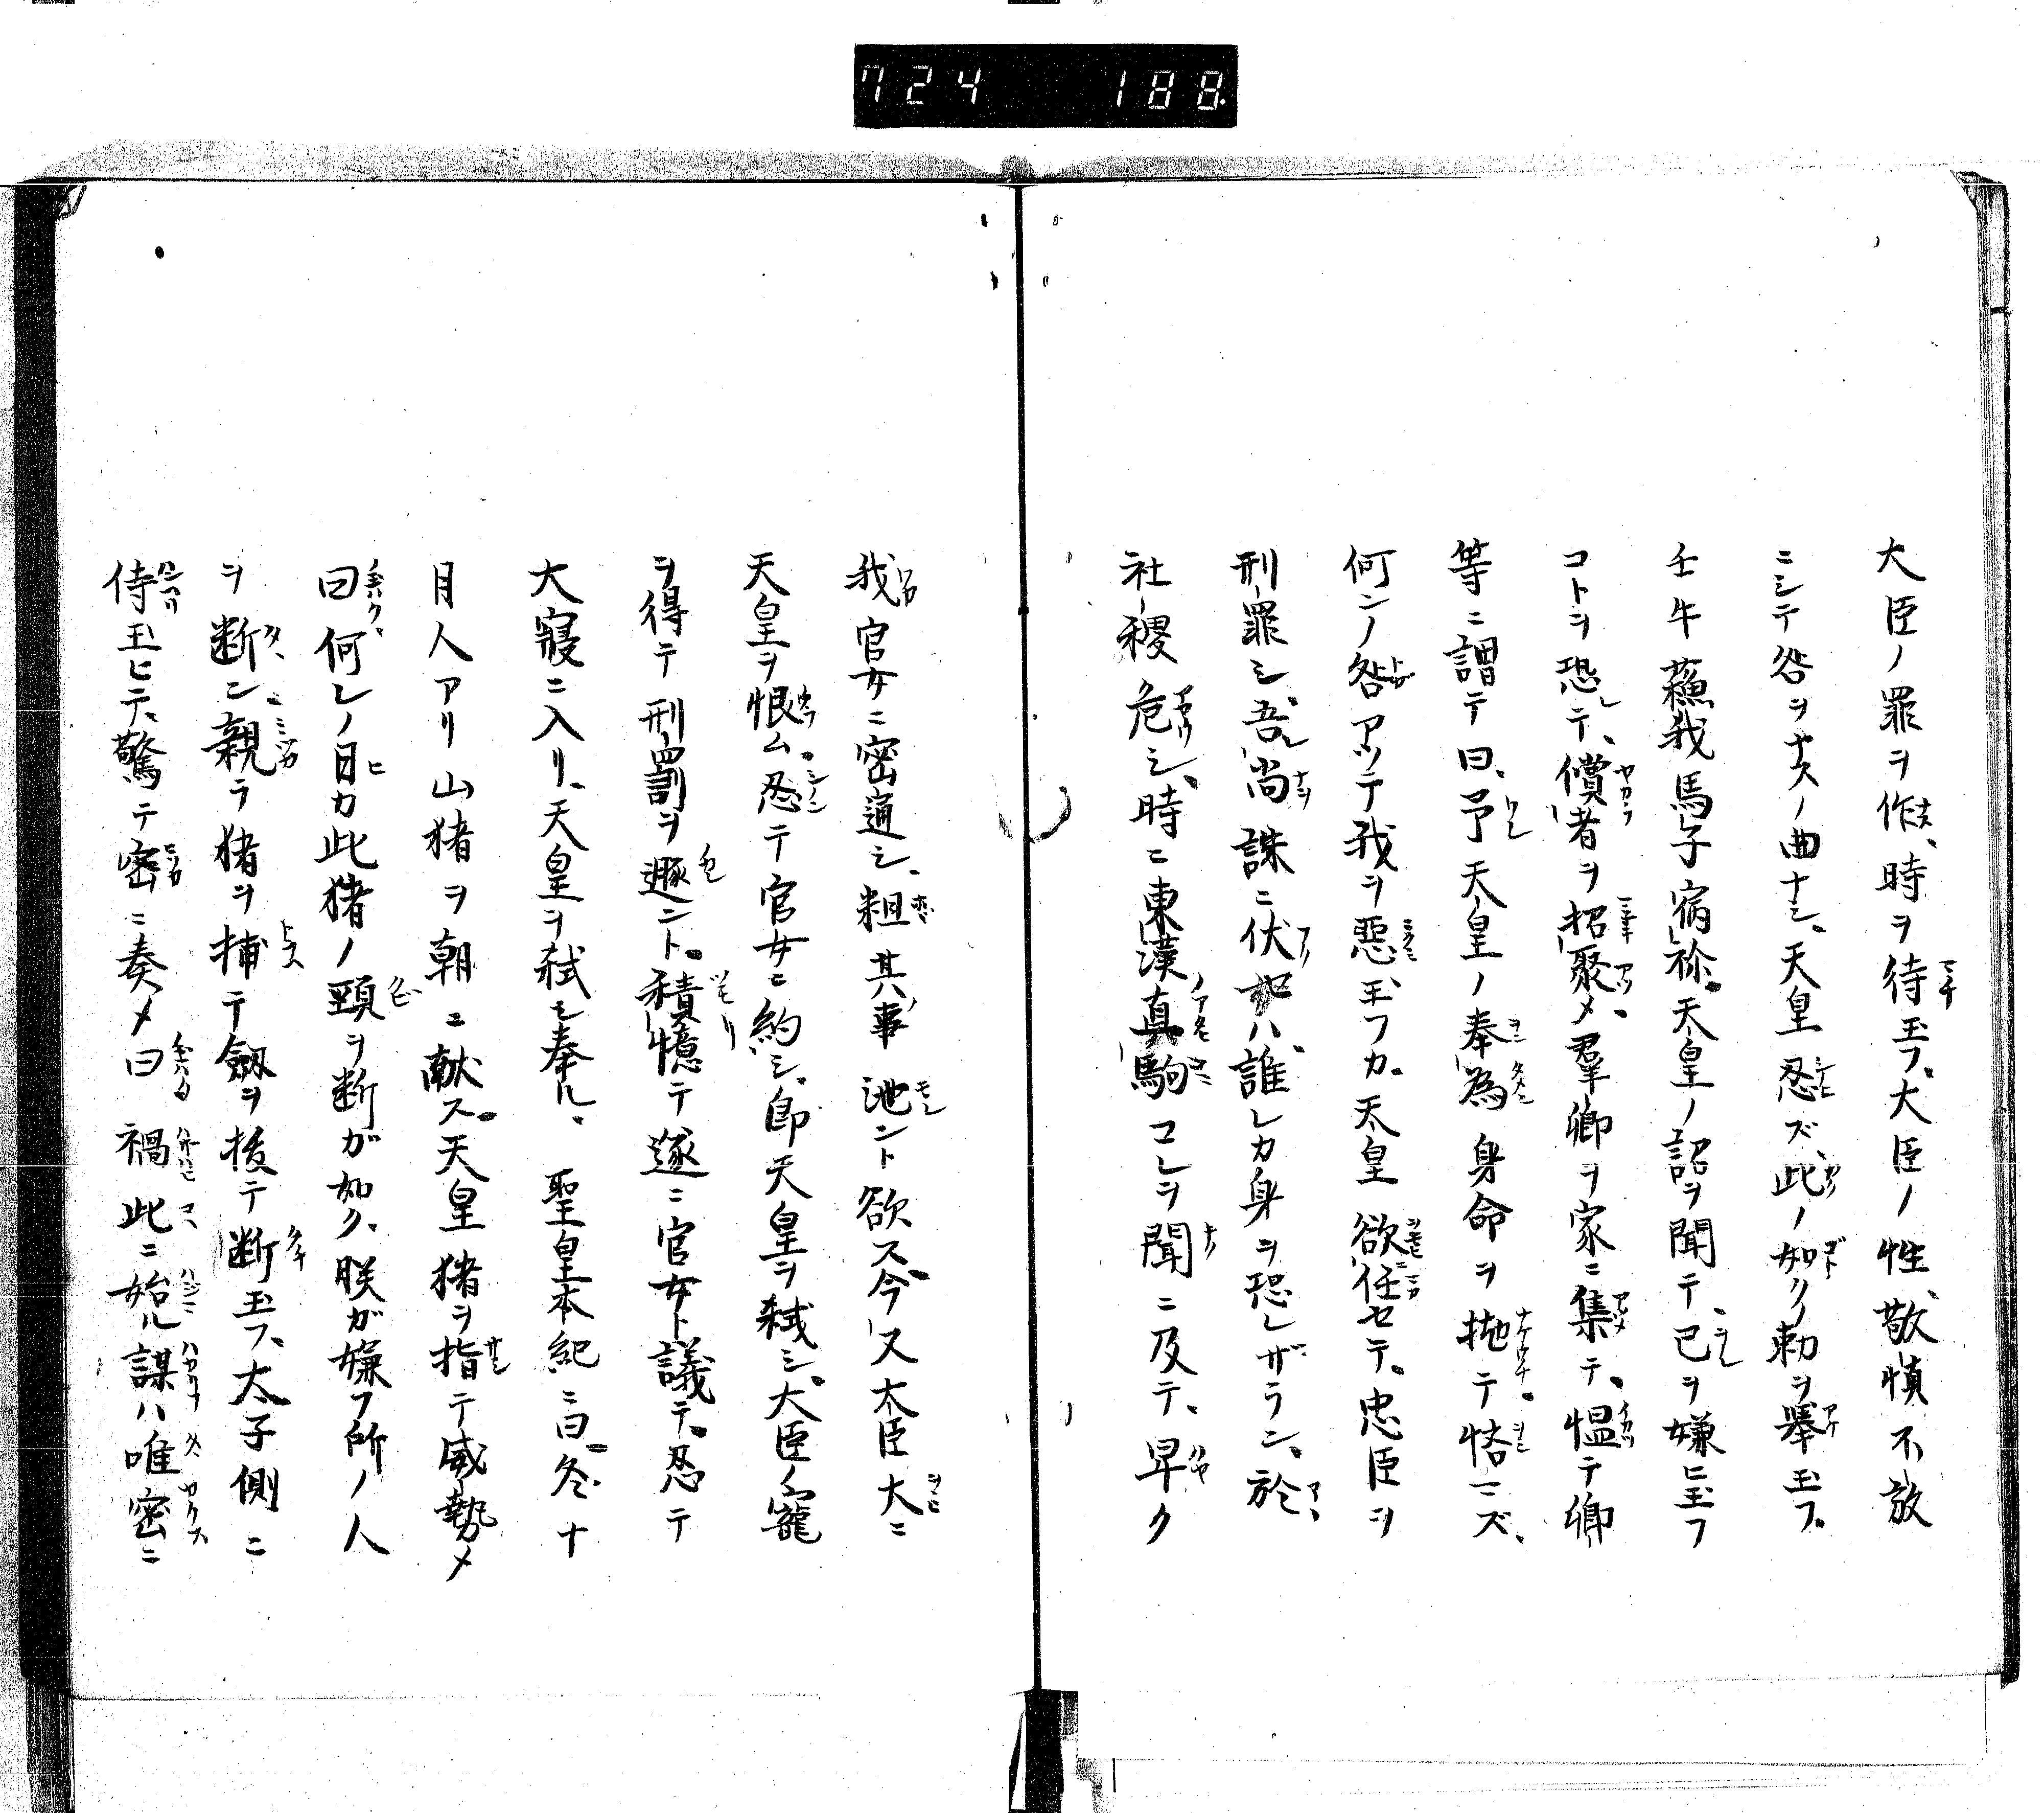 724 188
大臣ノ罪ヲ作、時ヲ待玉フ。大臣ノ性、敬慎不放
ニシテ咎ヲナスノ曲ナシ、天皇忍ズ、此ノ如クノ勅ヲ舉玉フ。
壬午蘓我馬子宿祢。天皇ノ詔ヲ聞テ、己ヲ嫌ヒ玉フ
コトヲ恐テ、儻者ヲ招聚メ、羣卿ヲ家ニ集テ、愠テ卿
等ニ謂テ曰、予天皇ノ奉為身命ヲ抛テ悋マズ、
何ンノ咎アツテ我ヲ惡玉フカ。天皇欲任セテ、忠臣ヲ
刑罪シ、吾尚誅ニ伏ハ、誰レカ身ヲ恐レザラン、於
社稷危シ、時ニ東漢真駒コレヲ聞ニ及テ、早ク
我官女ニ密通シ、粗其事泄ント欲ス今又大臣大ニ
天皇ヲ恨ム、忍テ官女ニ約シ、即天皇ヲ弑シ、大臣ノ寵
ヲ得テ刑罰ヲ遯ント。積憶テ遂ニ官女ト議テ、忍テ
大寢ニ入リ、天皇ヲ弑シ奉ル、聖皇本紀ニ曰、冬十
月人アリ山猪ヲ朝ニ献ス。天皇猪ヲ指テ威勢メ
曰何レノ日カ此猪ノ頸ヲ断ガ如ク、朕ガ嫌フ所ノ人
ヲ断ン親ラ猪ヲ捕テ劔ヲ抜テ断玉フ、太子側ニ
侍玉ヒテ、驚テ密ニ奏メ曰禍此ニ始ル謀ハ唯密ニ